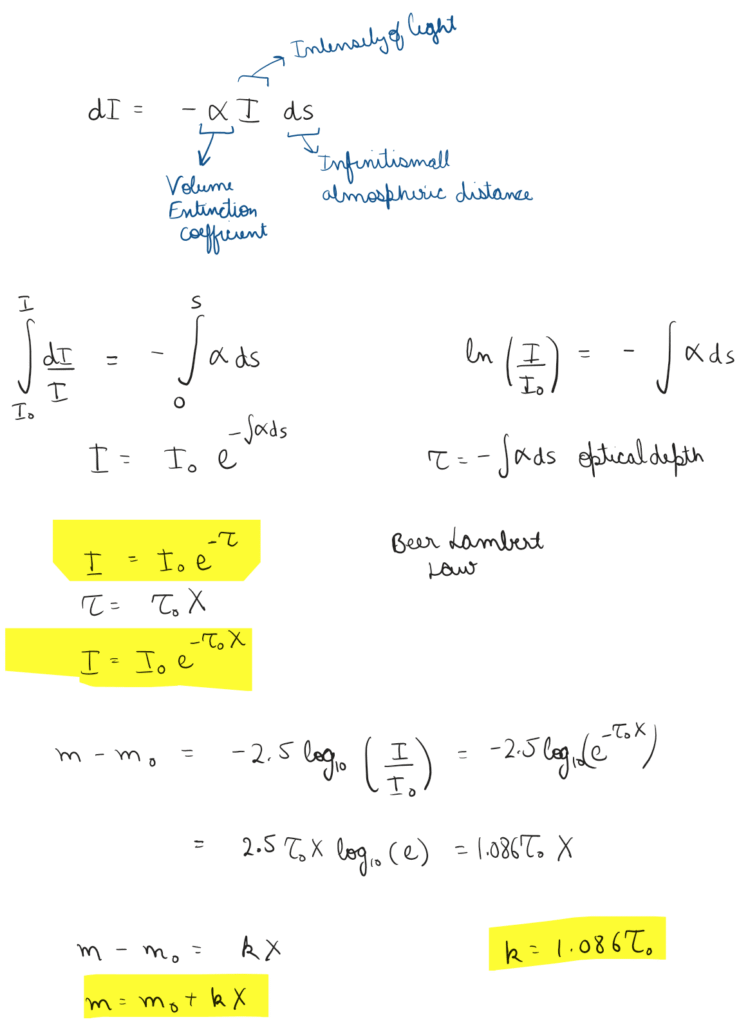 Intensity of light
dI = - α I ds
Volume
Extinction
coefficient
Infinitismall
atmospheric distance
∫_{I₀}^{I} dI/I = - ∫_{0}^{S} α ds
ln (I/I₀) = - ∫ α ds
I = I₀ e^{-∫αds}
τ = - ∫αds optical depth
I = I₀ e^{-τ}
Beer Lambert
Law
τ = τ₀ X
I = I₀ e^{-τ₀ X}
m - m₀ = -2.5 log₁₀ (I/I₀) = -2.5 log₁₀(e^{-τ₀ X})
= 2.5 τ₀ X log₁₀ (e) = 1.086 τ₀ X
m - m₀ = k X
k = 1.086 τ₀
m = m₀ + k X